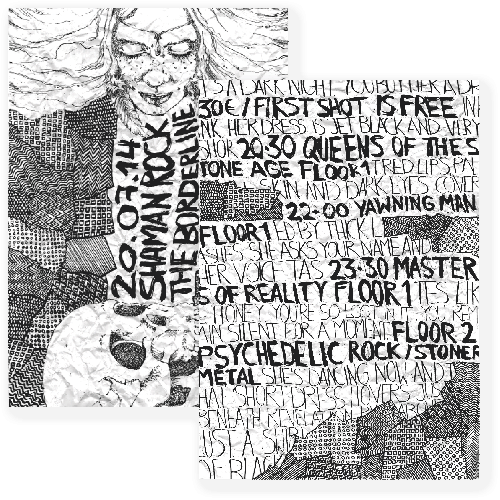 20.07.14
SHAMAN ROCK
THE BORDERLINE
IT'S A DARK NIGHT YOU BUTHER A
30€ / FIRST SHOT IS FREE IN
HER DRESS IS JET BLACK AND VERY
SHOR 20:30 QUEENS OF THE S
TONE AGE FLOOR 1 RED LIPS PA
SKIN AND DARK EYES COVER
22:00 YAWNING MAN
FLOOR 1 ED BY THICK L
SHES SHE ASKS YOUR NAME AND
HER VOICE TAS 23:30 MASTER
S OF REALITY FLOOR 1 TES LIK
HONEY YOU'RE SO LOST IN IT YOU REM
AIN SILENT FOR A MOMENT FLOOR 2
PSYCHEDELIC ROCK / STONER
METAL SHE'S DANCING NOW AND
HAT SHORT DRESS HOVERS
BENEATH REVELATION ABO
JUST A
OF BLACK